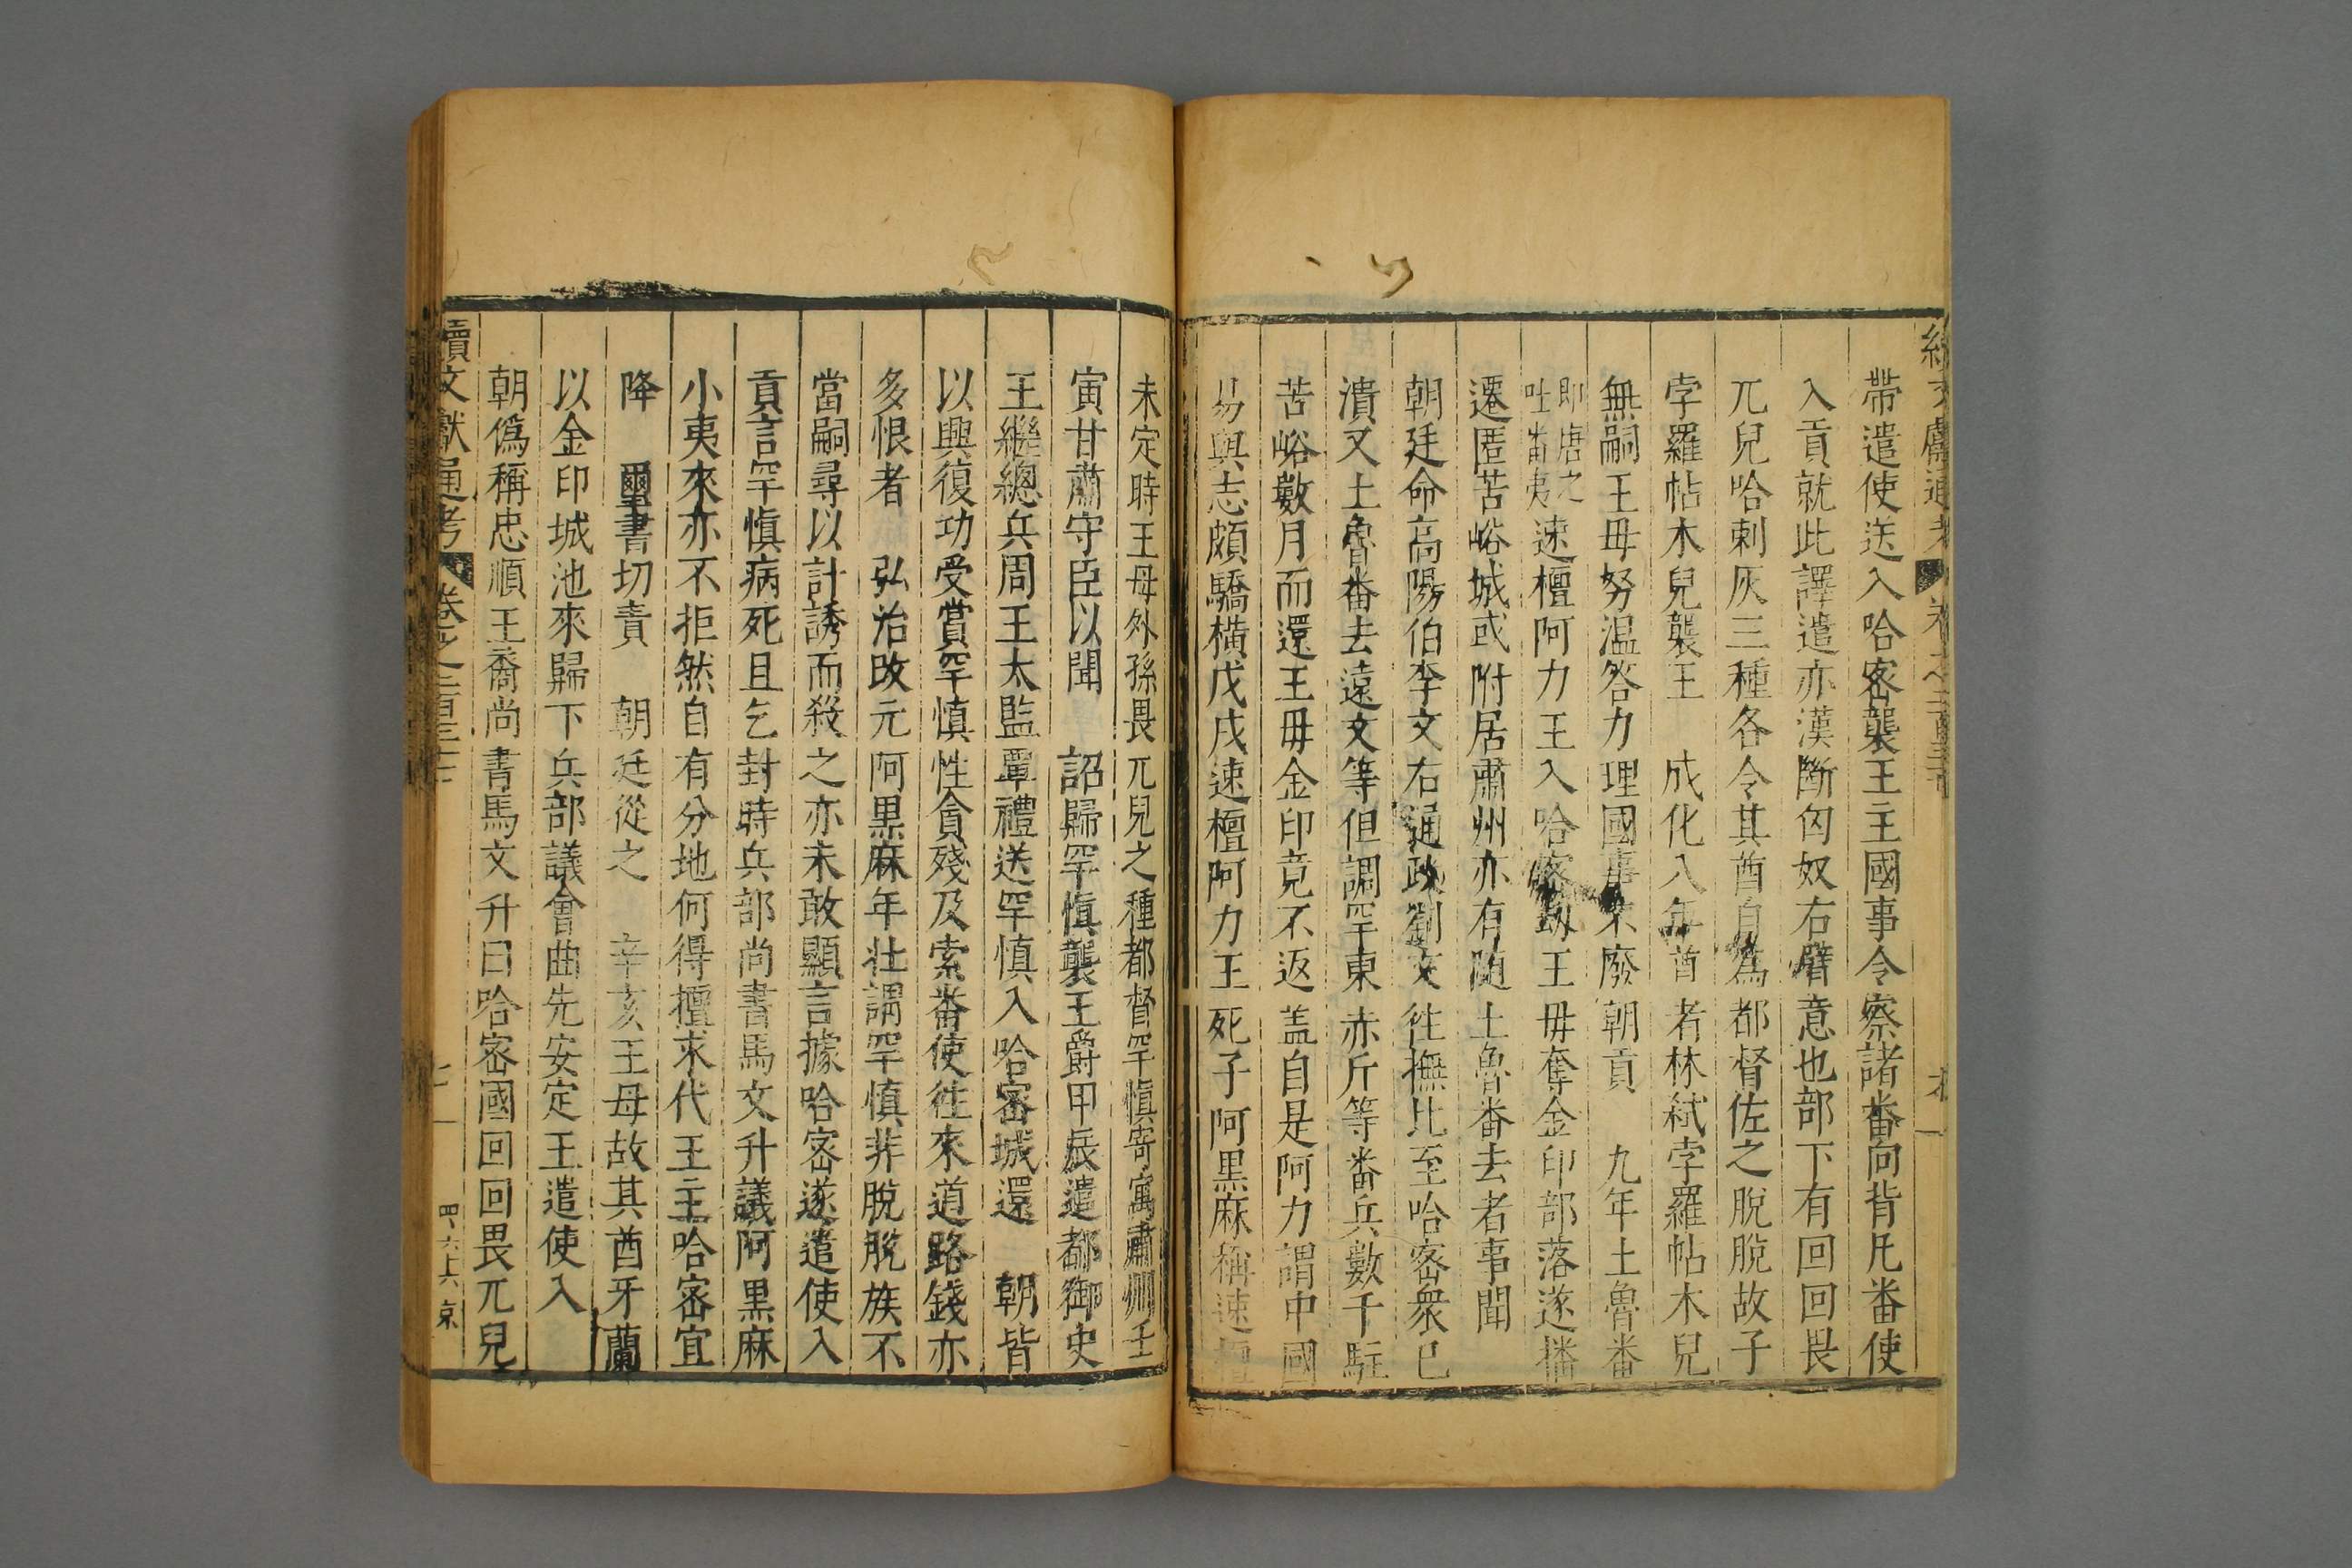 帶遣使送入哈密襲王主國事令察諸番向背凡番使
入貢就此譯遣亦漢斷匈奴右臂意也部下有回回畏
兀兒哈剌灰三種各令其酋自為都督佐之脫脫故子
孛羅帖木兒襲王　成化八年酋者林弒孛羅帖木兒
無嗣王母努溫答力理國事不廢朝貢　九年土魯番
即唐之
吐畨夷
速檀阿力王入哈密刼王母奪金印部落遂播
遷匿苦峪城或附居肅州亦有随土魯番去者事聞
朝廷命高陽伯李文右通政劉文徃撫比至哈密衆已
潰又土魯番去遠文等但調罕東赤斤等番兵數千駐
苦峪數月而還王毋金印竟不返盖自是阿力謂中國
易與志頗驕橫戊戌速檀阿力王死子阿黒麻稱速檀
未定時王母外孫畏兀兒之種都督罕慎寄寓肅州壬
寅甘肅守臣以聞　詔歸罕慎襲王爵甲辰遣都御史
王繼總兵周玉太監覃禮送罕慎入哈密城還　朝皆
以興復功受賞罕慎性貪殘及索番使徃來道路錢亦
多恨者　弘治改元阿黒麻年壮謂罕慎非脫脫族不
當嗣尋以計誘而殺之亦未敢顯言據哈密遂遣使入
貢言罕慎病死且乞封時兵部尚書馬文升議阿黒麻
小夷來亦不拒然自有分地何得擅求代王主哈密宜
降　璽書切責　朝廷從之　辛亥王母故其酋牙蘭
以金印城池來歸下兵部議會曲先安定王遣使入
朝偽稱忠順王裔尚書馬文升曰哈密國回回畏兀兒
續文獻通考　卷之二百三十
七
四六六　京